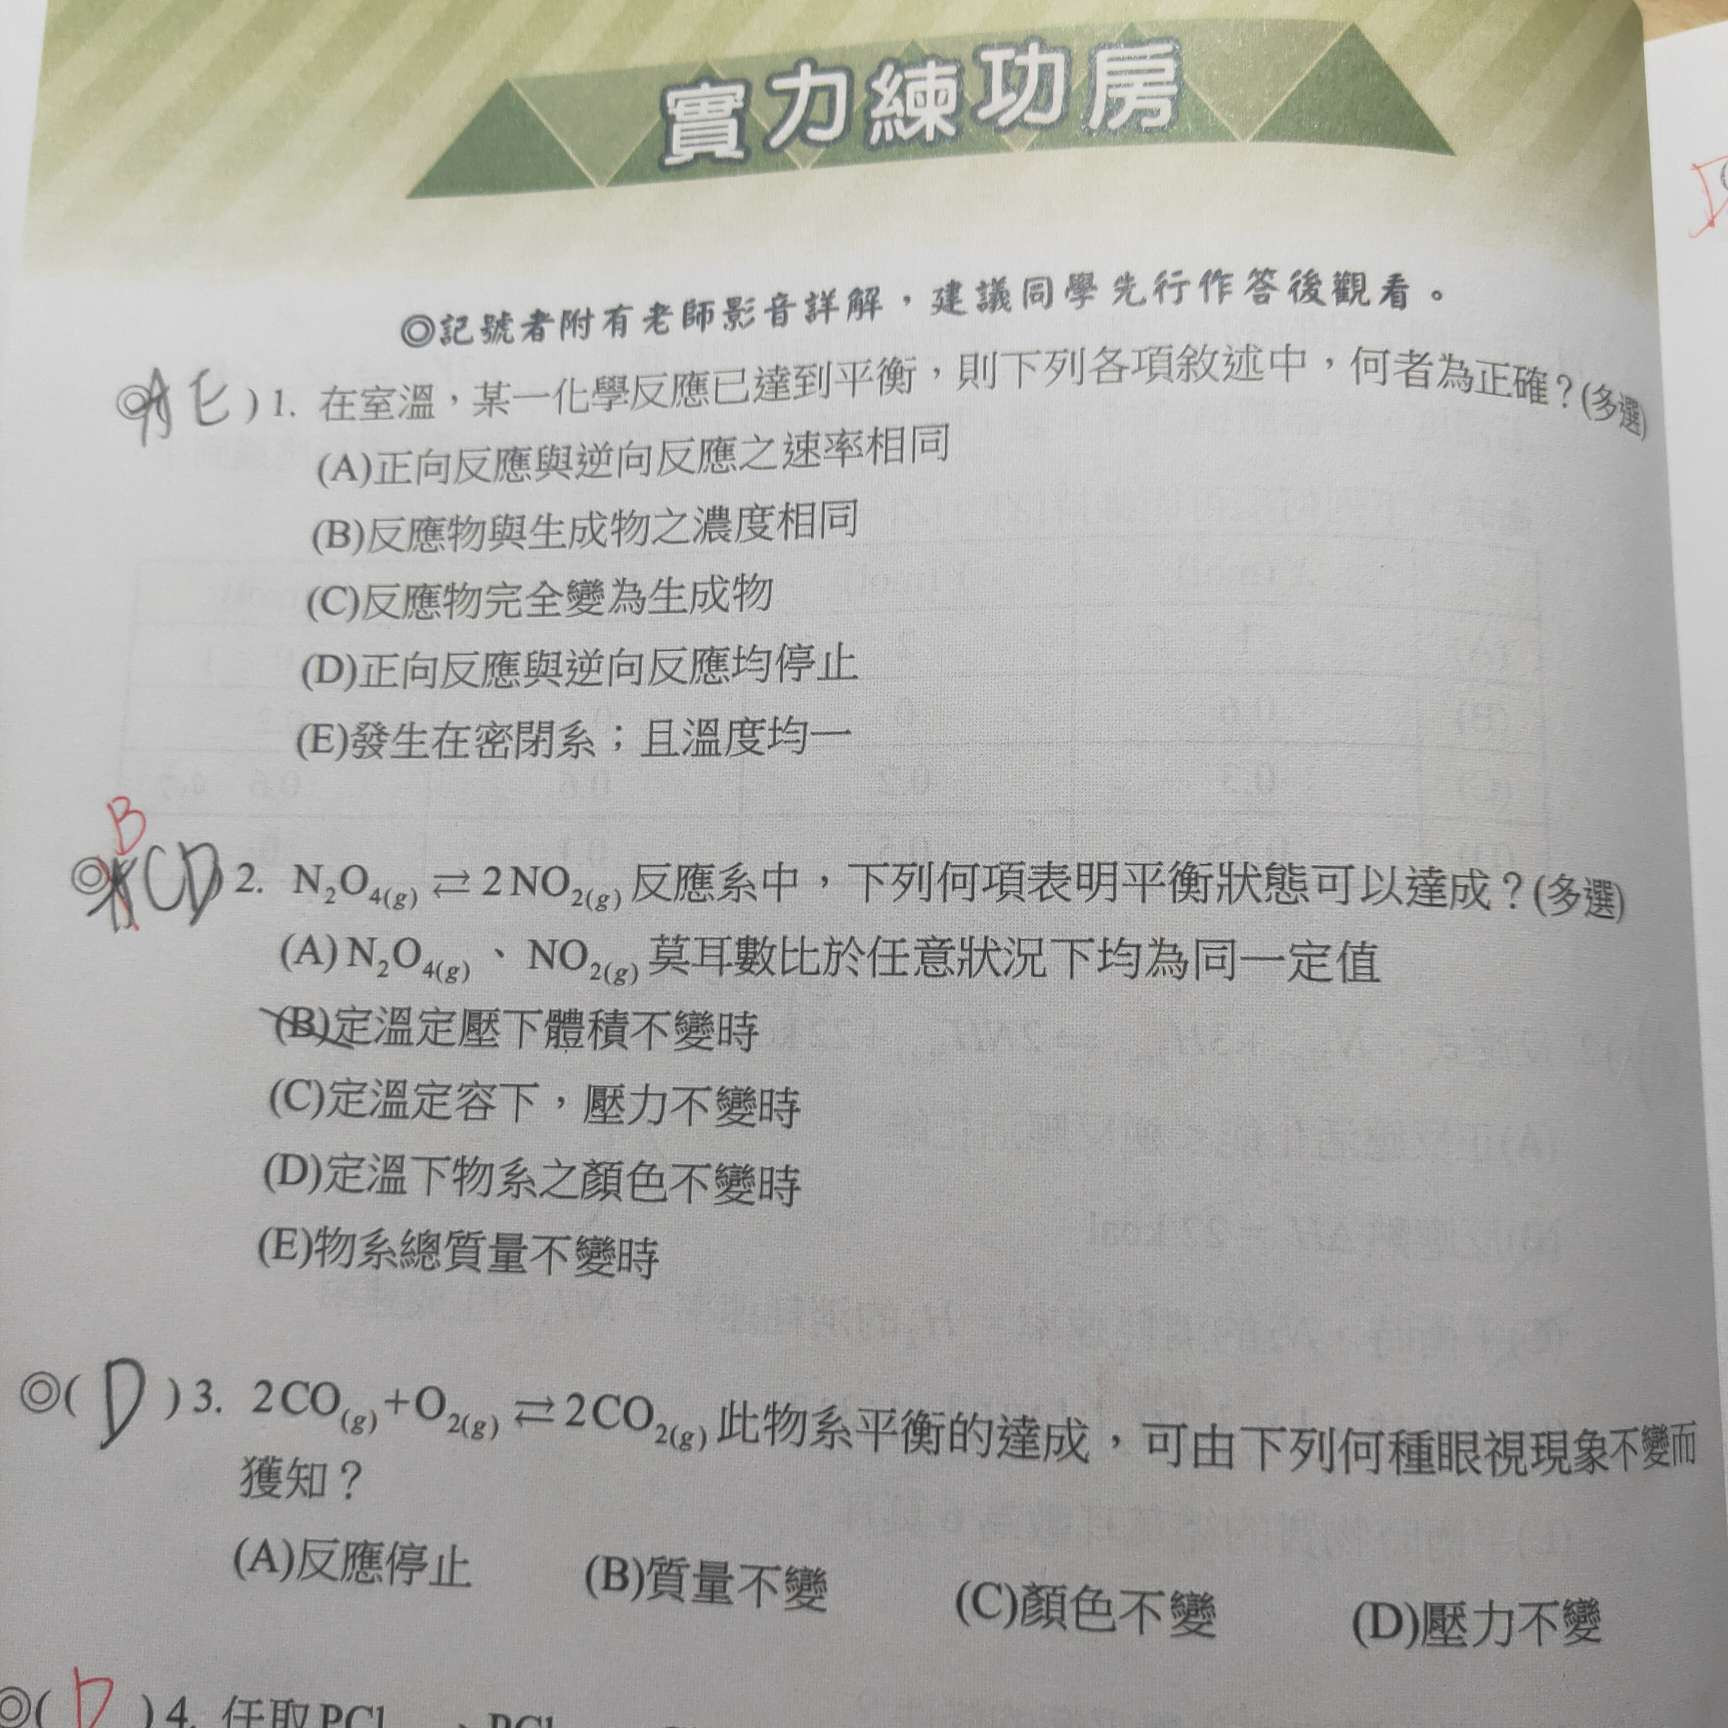 實力練功房
◎記號者附有老師影音詳解，建議同學先行作答後觀看。
◎ A E ) 1. 在室溫，某一化學反應已達到平衡，則下列各項敘述中，何者為正確？(多選)
(A)正向反應與逆向反應之速率相同
(B)反應物與生成物之濃度相同
(C)反應物完全變為生成物
(D)正向反應與逆向反應均停止
(E)發生在密閉系；且溫度均一
B
◎ CD ) 2. N₂O₄(g) ⇄ 2NO₂(g) 反應系中，下列何項表明平衡狀態可以達成？(多選)
(A) N₂O₄(g) 、 NO₂(g) 莫耳數比於任意狀況下均為同一定值
(B)定溫定壓下體積不變時
(C)定溫定容下，壓力不變時
(D)定溫下物系之顏色不變時
(E)物系總質量不變時
◎( D ) 3. 2CO(g)+O₂(g) ⇄ 2CO₂(g) 此物系平衡的達成，可由下列何種眼視現象不變而
獲知？
(A)反應停止 (B)質量不變 (C)顏色不變 (D)壓力不變
◎( D ) 4. 任取PCl 、PCl